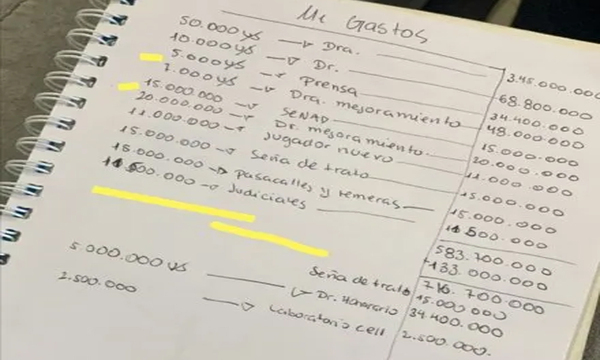 Mc Gastos
50.000 u$ → Dra. 345.000.000
10.000 u$ → Dr. 68.800.000
5.000 u$ → Prensa 34.400.000
7.000 u$ → Dra. mejoramiento 48.000.000
15.000.000 → SENAD 15.000.000
20.000.000 → Dr. mejoramiento 20.000.000
11.000.000 → Jugador nuevo 11.000.000
15.000.000 → Seña de trato 15.000.000
15.000.000 → Pasacalles y remeras 15.000.000
11.500.000 → Judiciales 11.500.000
583.700.000
133.000.000
716.700.000
Seña de trato 15.000.000
5.000.000 u$ → Dr. Honorario 34.400.000
2.500.000 → Laboratorio cell 2.500.000.